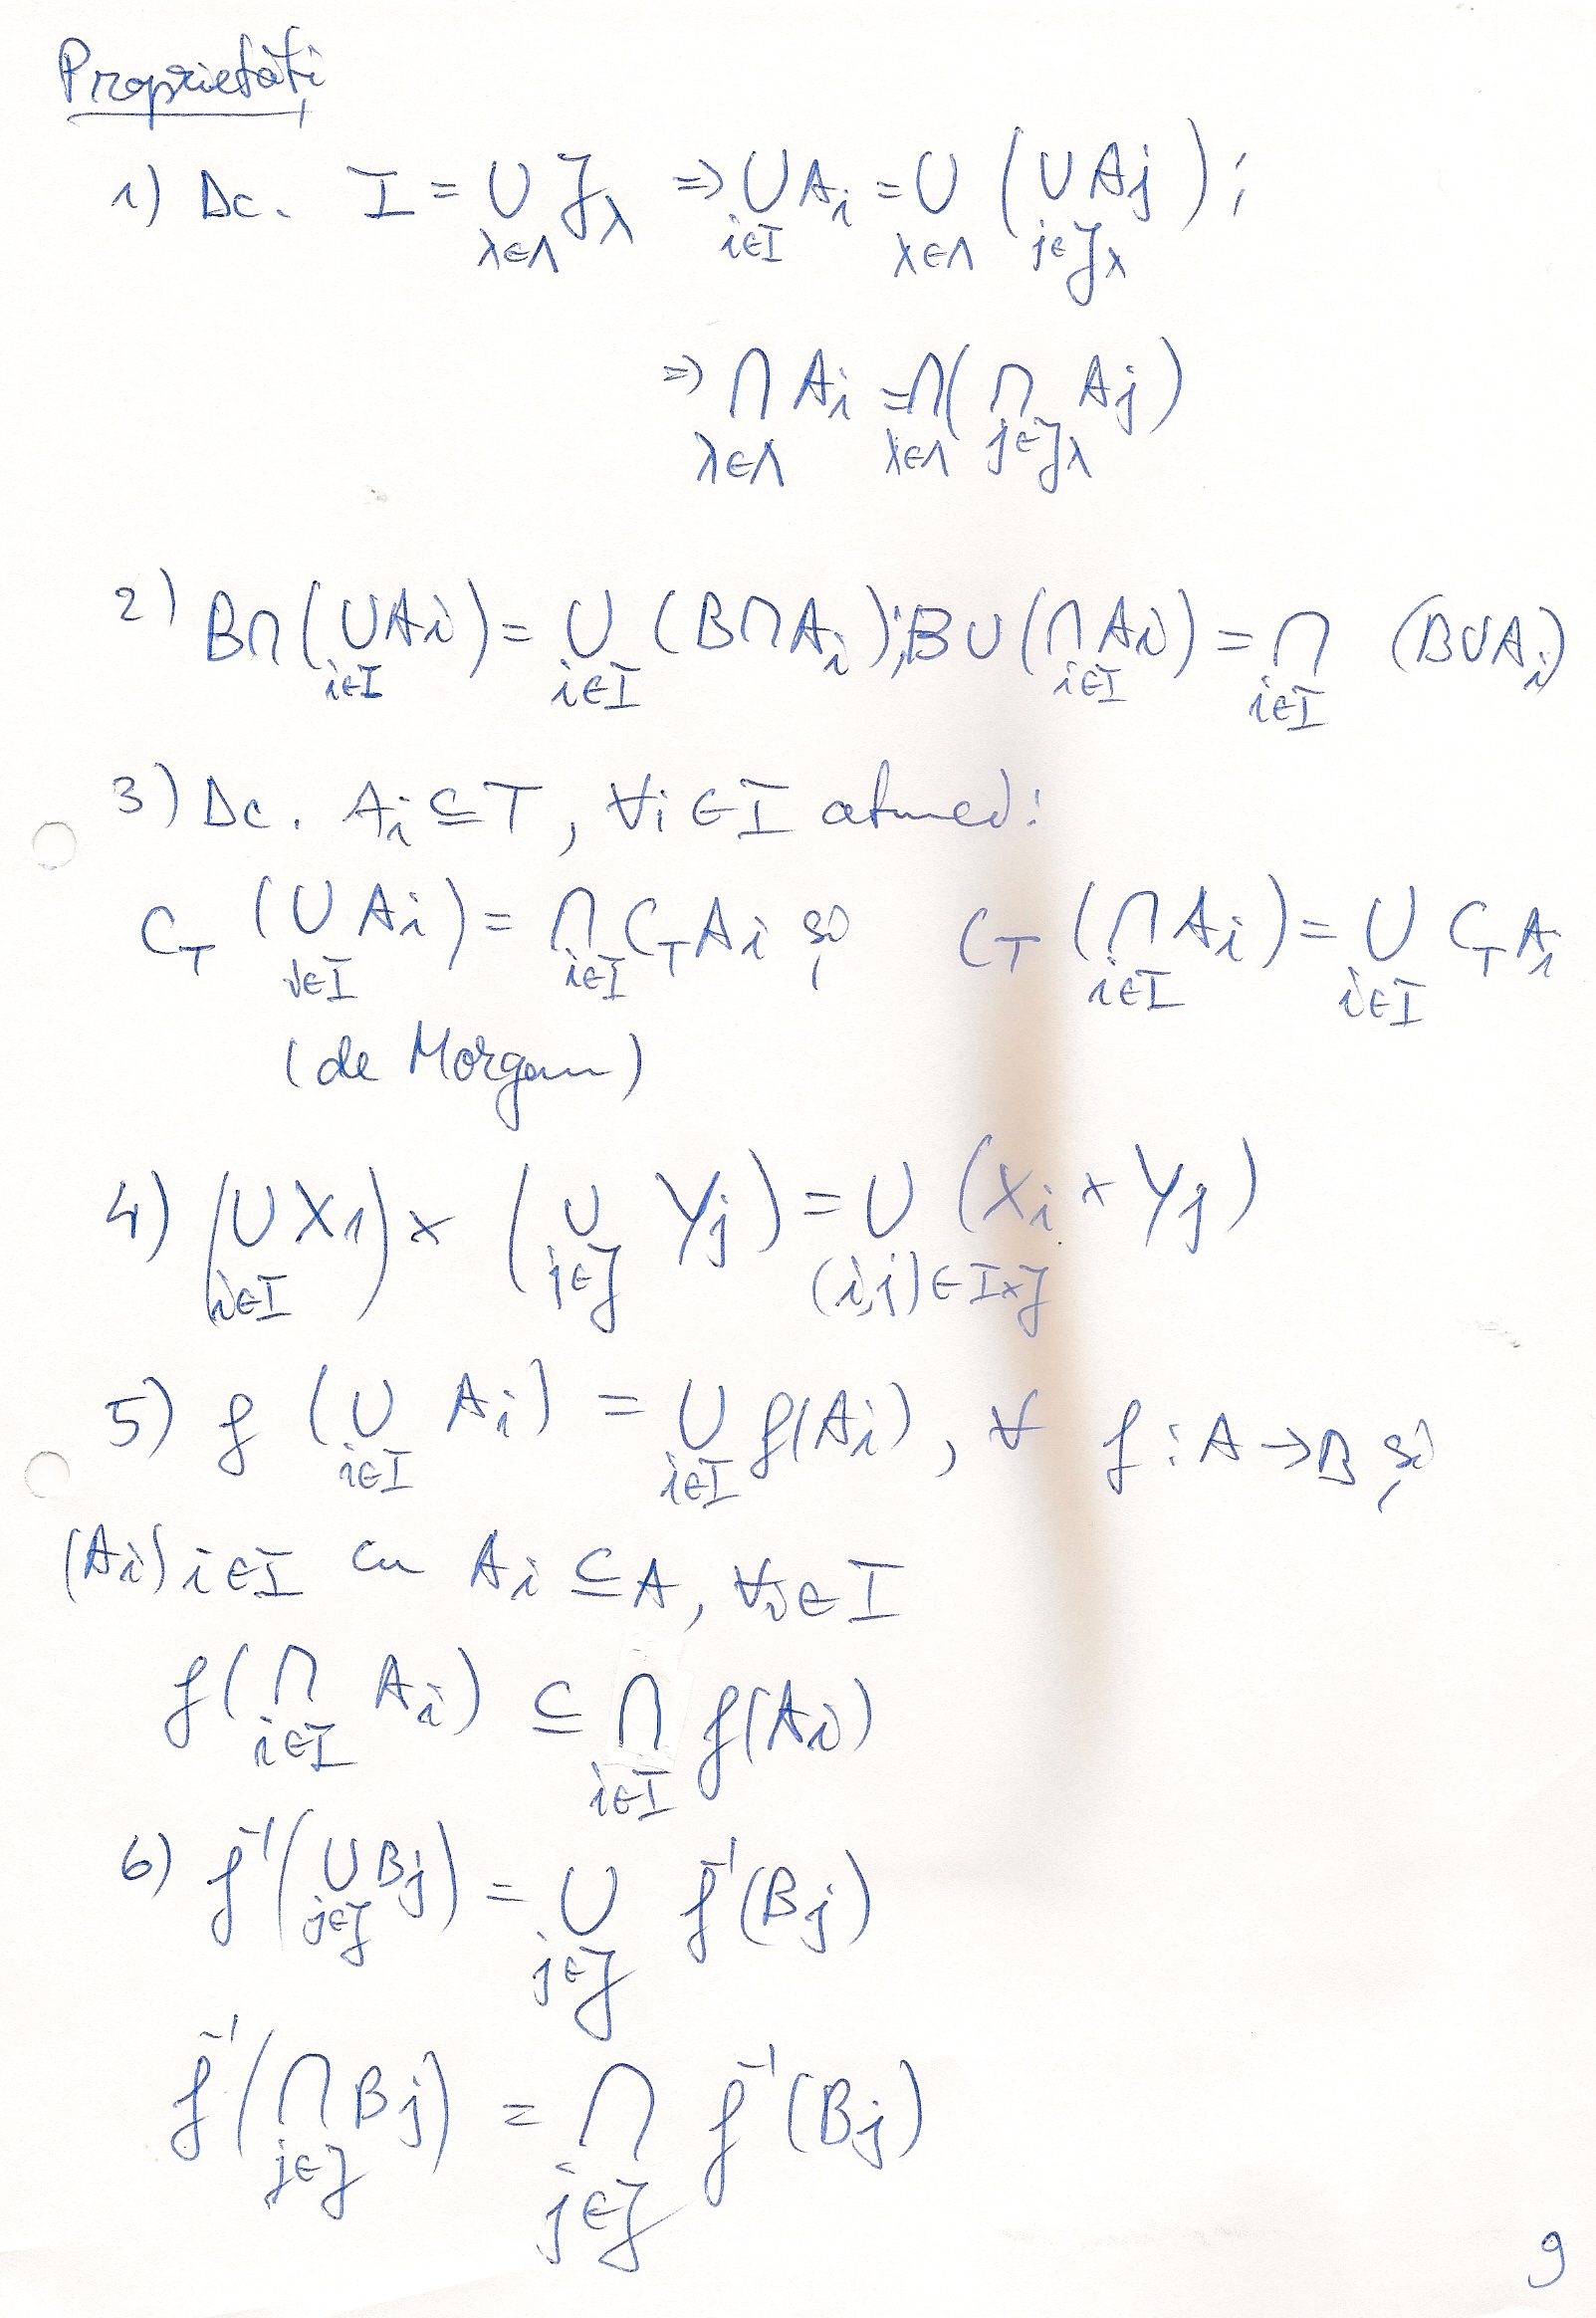 Proprietăți
1) Dc. I = ∪_{λ∈Λ} J_λ ⇒ ∪_{i∈I} A_i = ∪_{λ∈Λ} (∪_{j∈J_λ} A_j);
⇒ ∩_{λ∈Λ} A_i = ∩_{λ∈Λ} (∩_{j∈J_λ} A_j)
2) B∩(∪_{i∈I} A_i) = ∪_{i∈I} (B∩A_i); B∪(∩_{i∈I} A_i) = ∩_{i∈I} (B∪A_i)
3) Dc. A_i ⊆ T, ∀i∈I atunci:
C_T (∪_{i∈I} A_i) = ∩_{i∈I} C_T A_i și C_T (∩_{i∈I} A_i) = ∪_{i∈I} C_T A_i
(de Morgan)
4) (∪_{i∈I} X_i) × (∪_{j∈J} Y_j) = ∪_{(i,j)∈I×J} (X_i × Y_j)
5) f (∪_{i∈I} A_i) = ∪_{i∈I} f(A_i), ∀ f : A → B și
(A_i)_{i∈I} cu A_i ⊆ A, ∀i∈I
f(∩_{i∈I} A_i) ⊆ ∩_{i∈I} f(A_i)
6) f⁻¹(∪_{j∈J} B_j) = ∪_{j∈J} f⁻¹(B_j)
f⁻¹(∩_{j∈J} B_j) = ∩_{j∈J} f⁻¹(B_j)
9